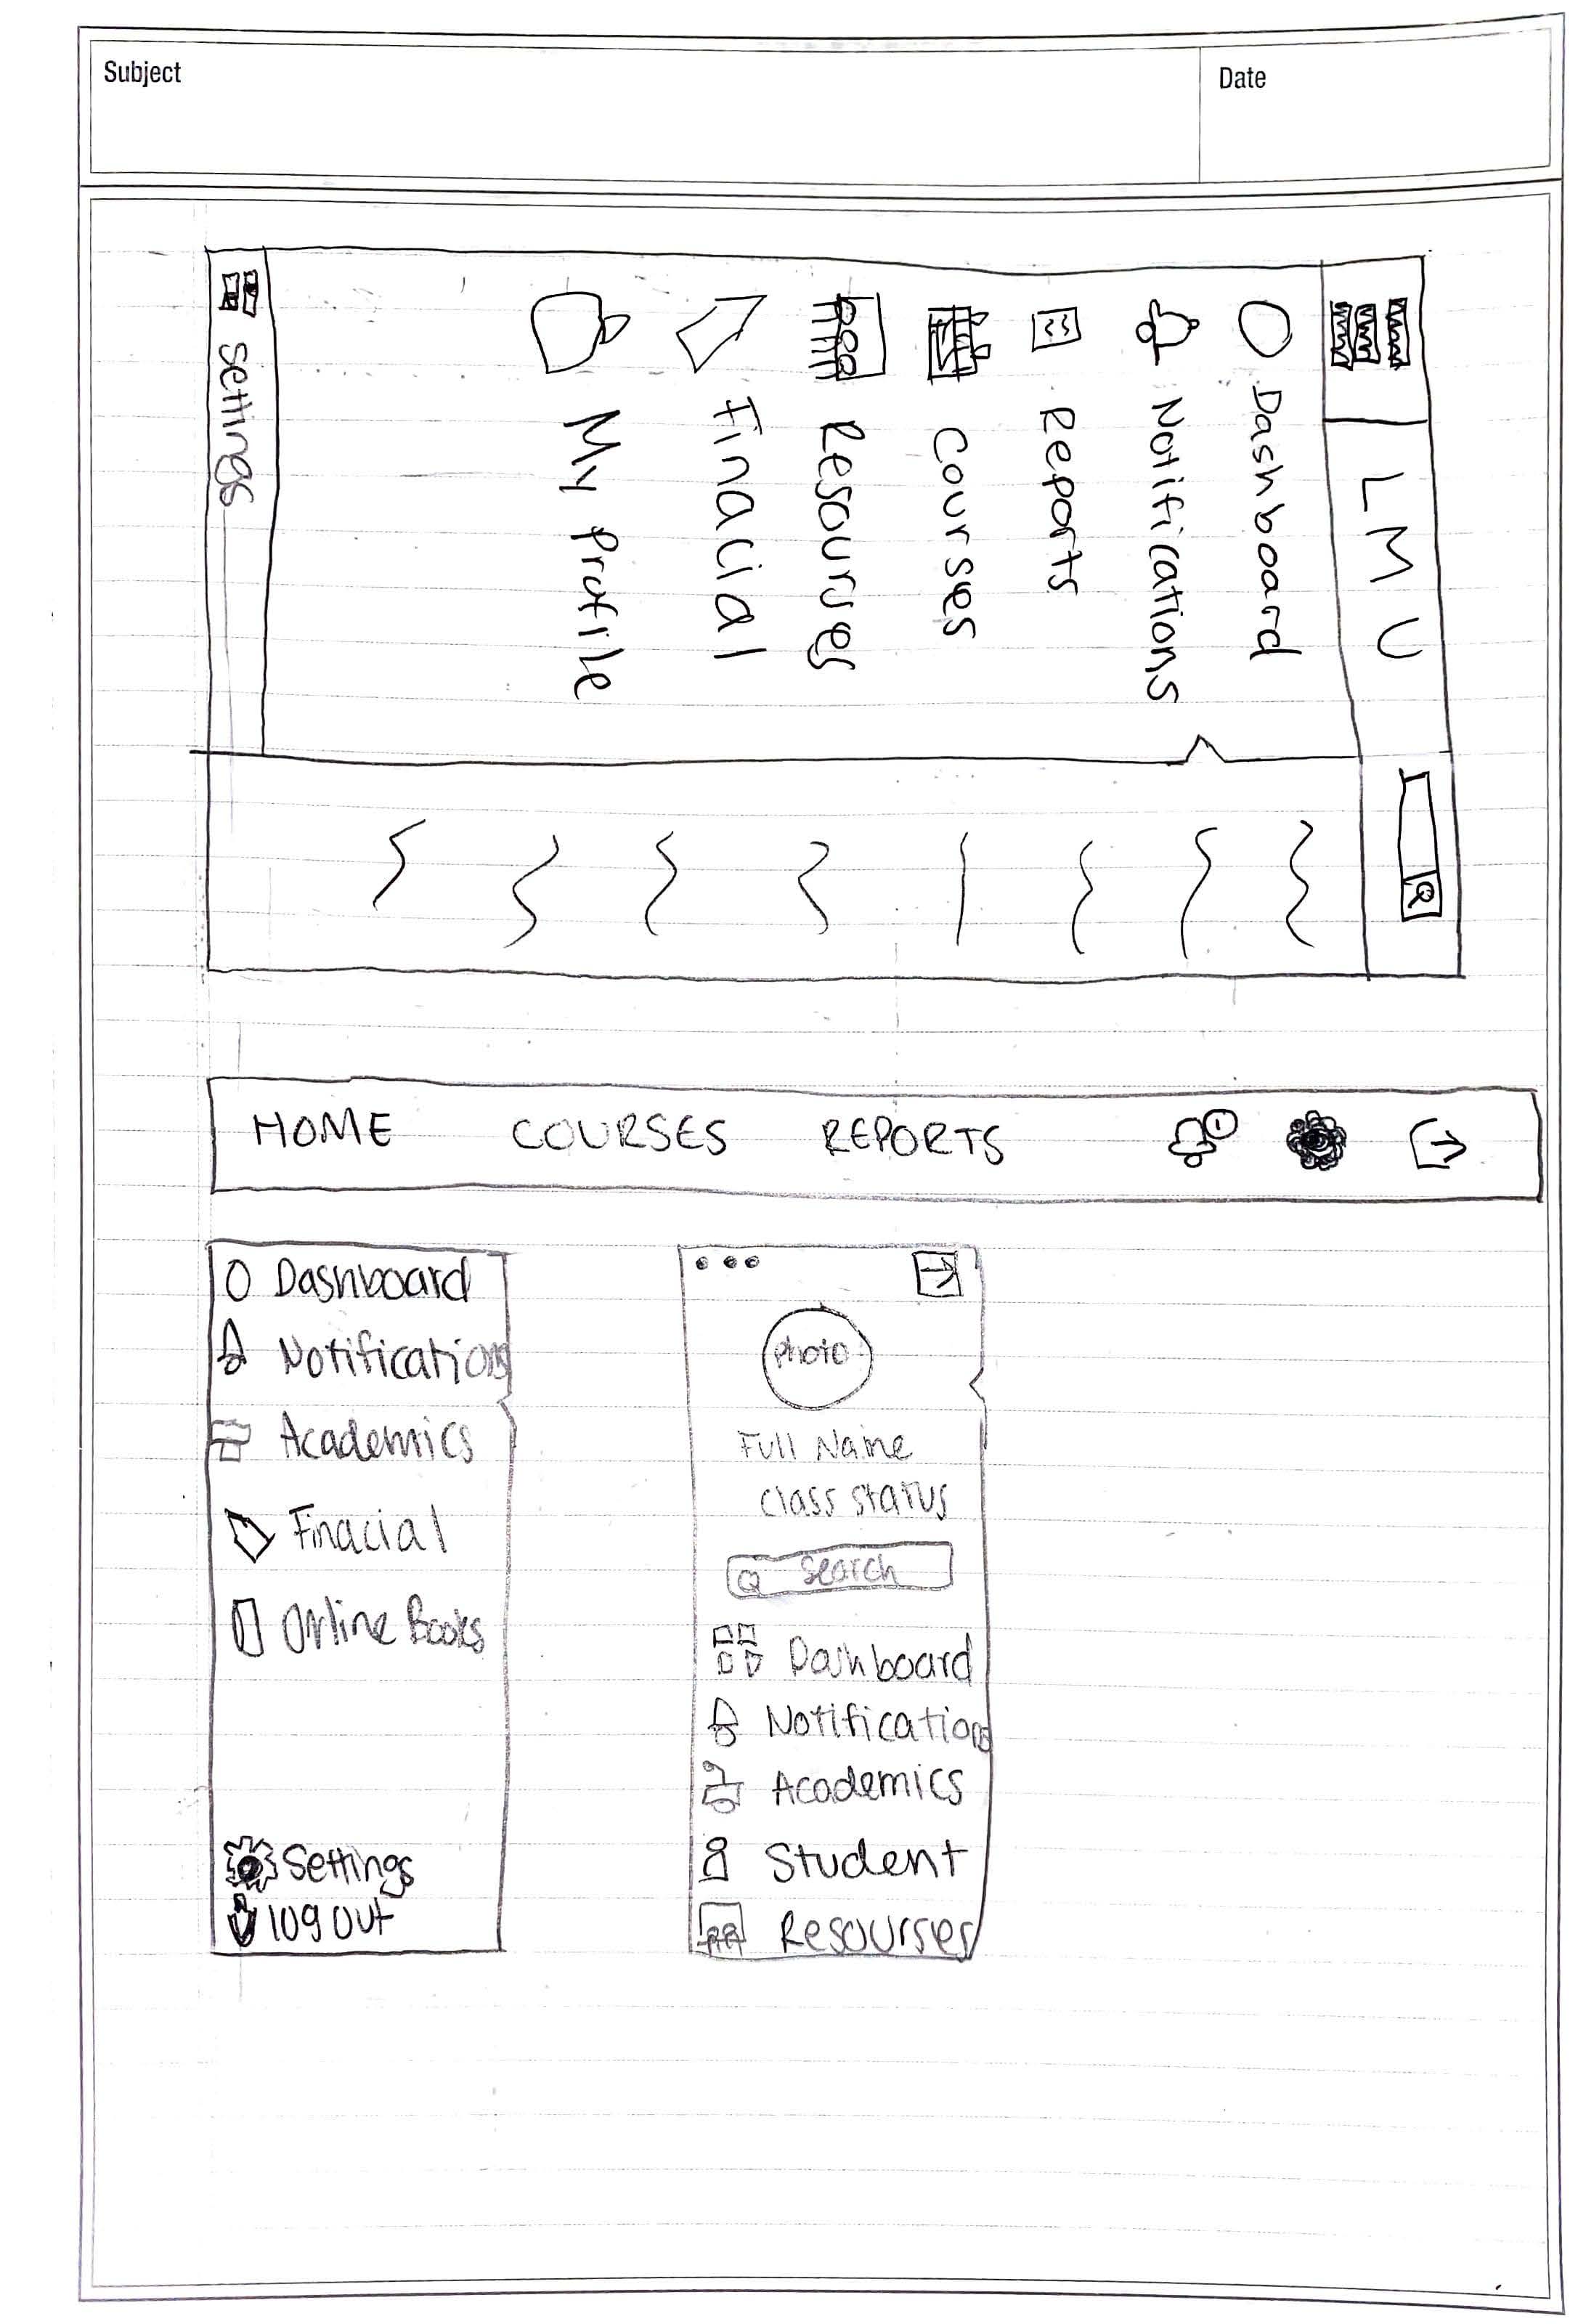 Subject
Date
LMU
Dashboard
Notifications
Reports
Courses
Resourses
Finacial
My Profile
Settings
HOME COURSES REPORTS
Dashboard
Notifications
Academics
Finacial
Online Books
Settings
log out
Photo
Full Name
Class status
Search
Dashboard
Notifications
Academics
Student
Resourses